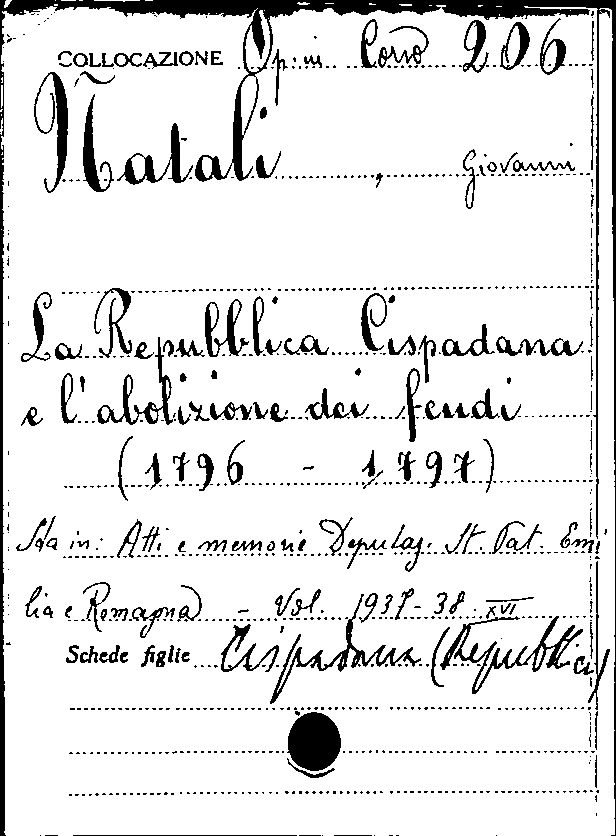 COLLOCAZIONE Op: in Corso 206
Natali, Giovanni
La Repubblica Cispadana
e l'abolizione dei feudi
(1796 - 1797)
Sta in: Atti e memorie Deputaz. St. Pat. Emi
lia e Romagna - Vol. 1937-38. XVI
Schede figlie Cispadana (Repubblica)